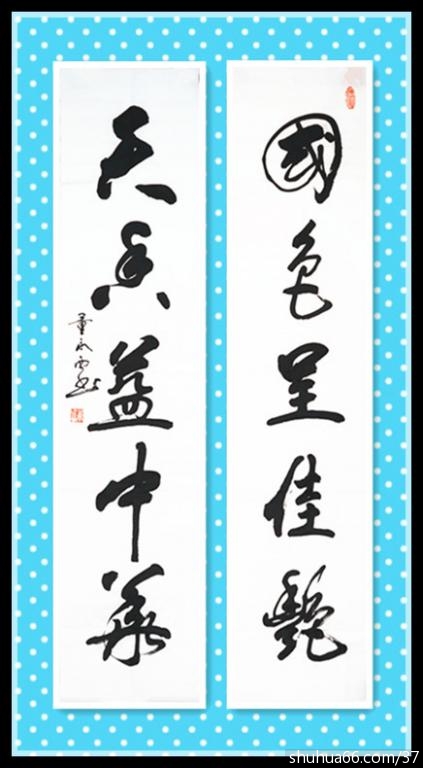 國色呈佳艷
天香益中華
shuhua66.com/37